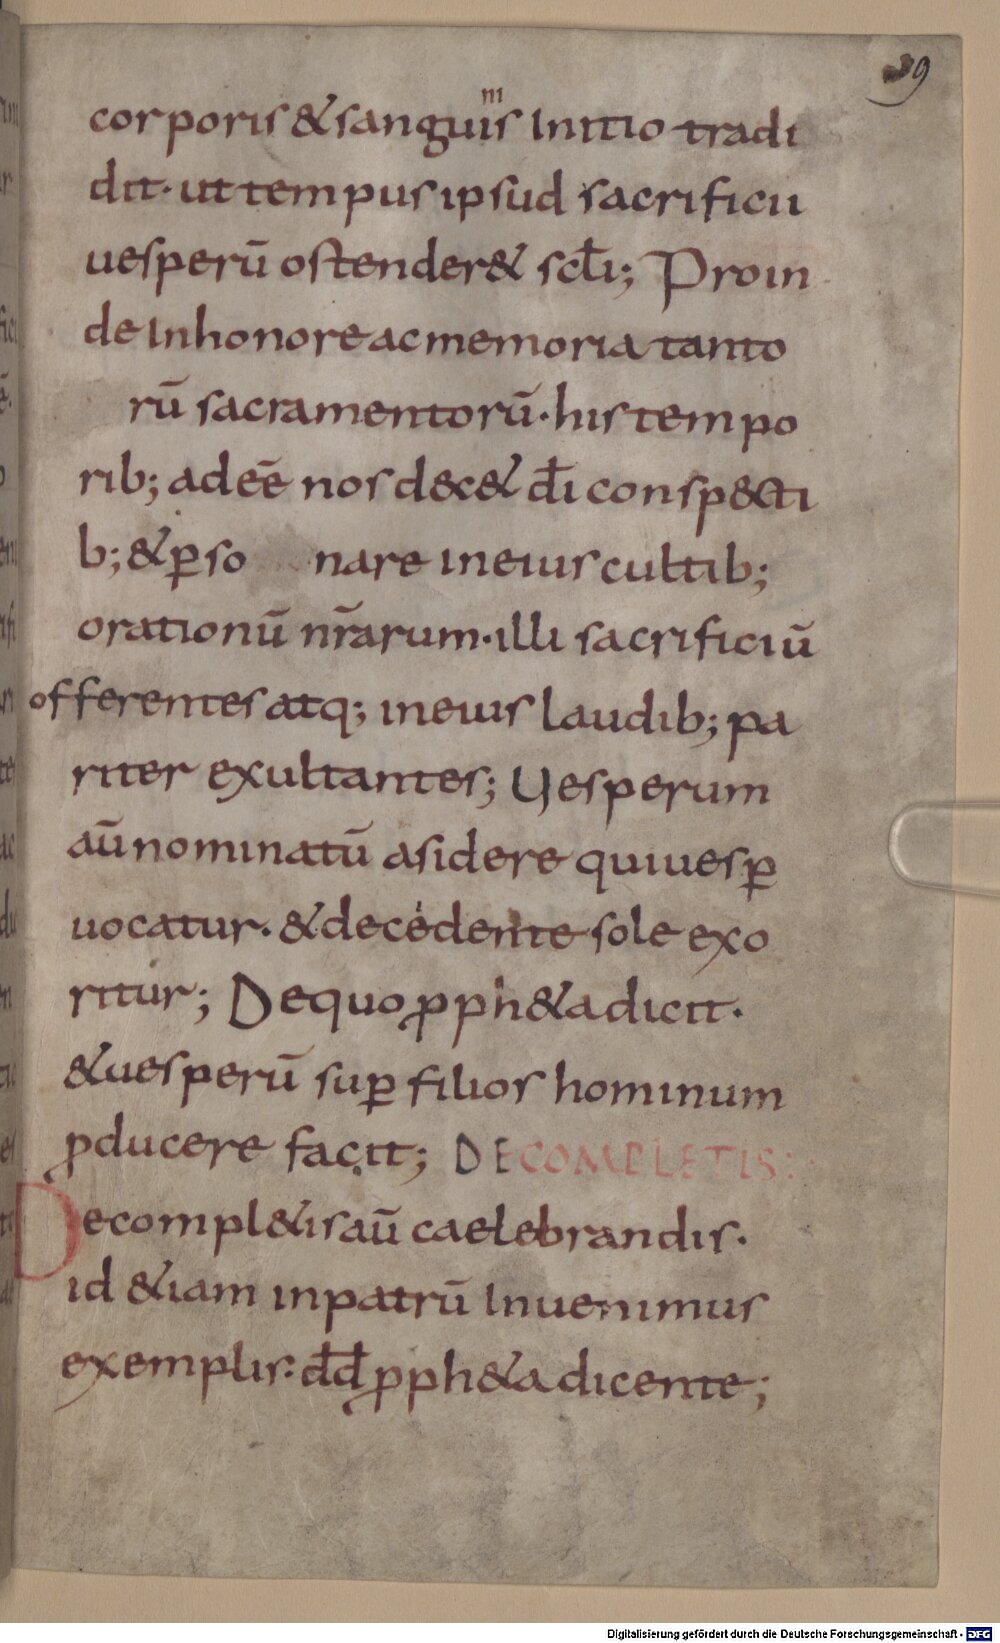 39
corporis &sanguinis Initio tradi
dit· ut tempus ipsud sacrificii
uesperū ostender& scłi; Proin
de Inhonore ac memoria tanto
rū sacramentorū· his tempo
rib; adeē nos dec& dī conspecti
b; &ꝑso nare in eius cultib;
orationū nr̄arum· illi sacrificiū
offerentes atq; in eius laudib; pa
riter exultantes; Uesperum
aū nominatū a sidere qui uesꝑ
uocatur· & decedente sole exo
ritur; De quo ꝓph&a dicit·
& uesperū suꝑ filios hominum
ꝓducere facit; DE COMPLETIS:
De compl&is aū caelebrandis·
id &iam in patrū Inuenimus
exemplis· dd̄ ꝓph&a dicente;
Digitalisierung gefördert durch die Deutsche Forschungsgemeinschaft - DFG